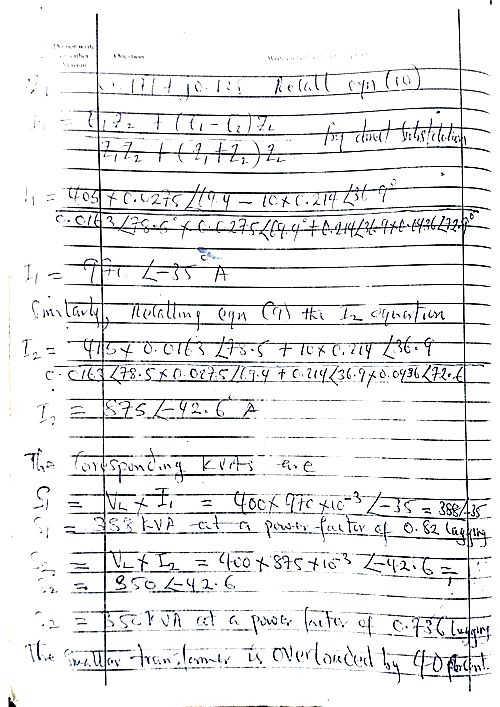 Question
= 0.171 + j0.128 Recall eqn (10)
= E1Z2 + (E1 - E2)ZL By direct Substitution
Z1Z2 + (Z1 + Z2)ZL
I1 = 405 x 0.0275 ∠69.4 - 10 x 0.214 ∠36.9°
0.0163 ∠78.5° x 0.0275 ∠69.4° + 0.214 ∠36.9 x 0.0436 ∠72.9°
I1 = 970 ∠-35° A
Similarly, Recalling eqn (9) the I2 equation
I2 = 415 x 0.0163 ∠78.5 + 10 x 0.214 ∠36.9
0.0163 ∠78.5 x 0.0275 ∠69.4 + 0.214 ∠36.9 x 0.0436 ∠72.6
I2 = 875 ∠-42.6° A
The Corresponding KVAs are
S1 = VL x I1 = 400 x 970 x 10^-3 ∠-35 = 388 ∠-35
S1 = 388 KVA at a power factor of 0.82 lagging
S2 = VL x I2 = 400 x 875 x 10^-3 ∠-42.6 =
S2 = 350 ∠-42.6
S2 = 350 KVA at a power factor of 0.736 lagging
The Smaller transformer is overloaded by 40 percent.